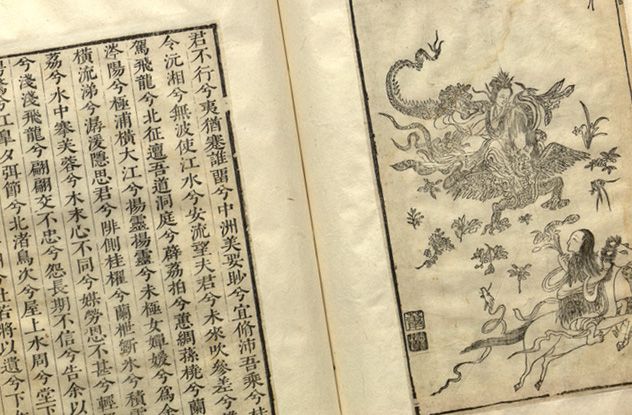 君不行兮夷猶蹇誰畱兮中洲美要眇兮宜脩沛吾乘兮桂
令沅湘兮無波使江水兮安流望夫君兮未來吹參差兮
駕飛龍兮北征邅吾道洞庭兮薜荔拍兮蕙綢蓀橈兮蘭
涔陽兮極浦橫大江兮揚靈揚靈兮未極女嬋媛兮為余
橫流涕兮潺湲隱思君兮陫側桂櫂兮蘭枻斲冰兮積
荔兮水中搴芙蓉兮木末心不同兮媒勞恩不甚兮輕
兮淺淺飛龍兮翩翩交不忠兮怨長期不信兮告余以
兮江皋夕弭節兮北渚鳥次兮屋上水周兮堂下
兮杜若將以遺兮下女